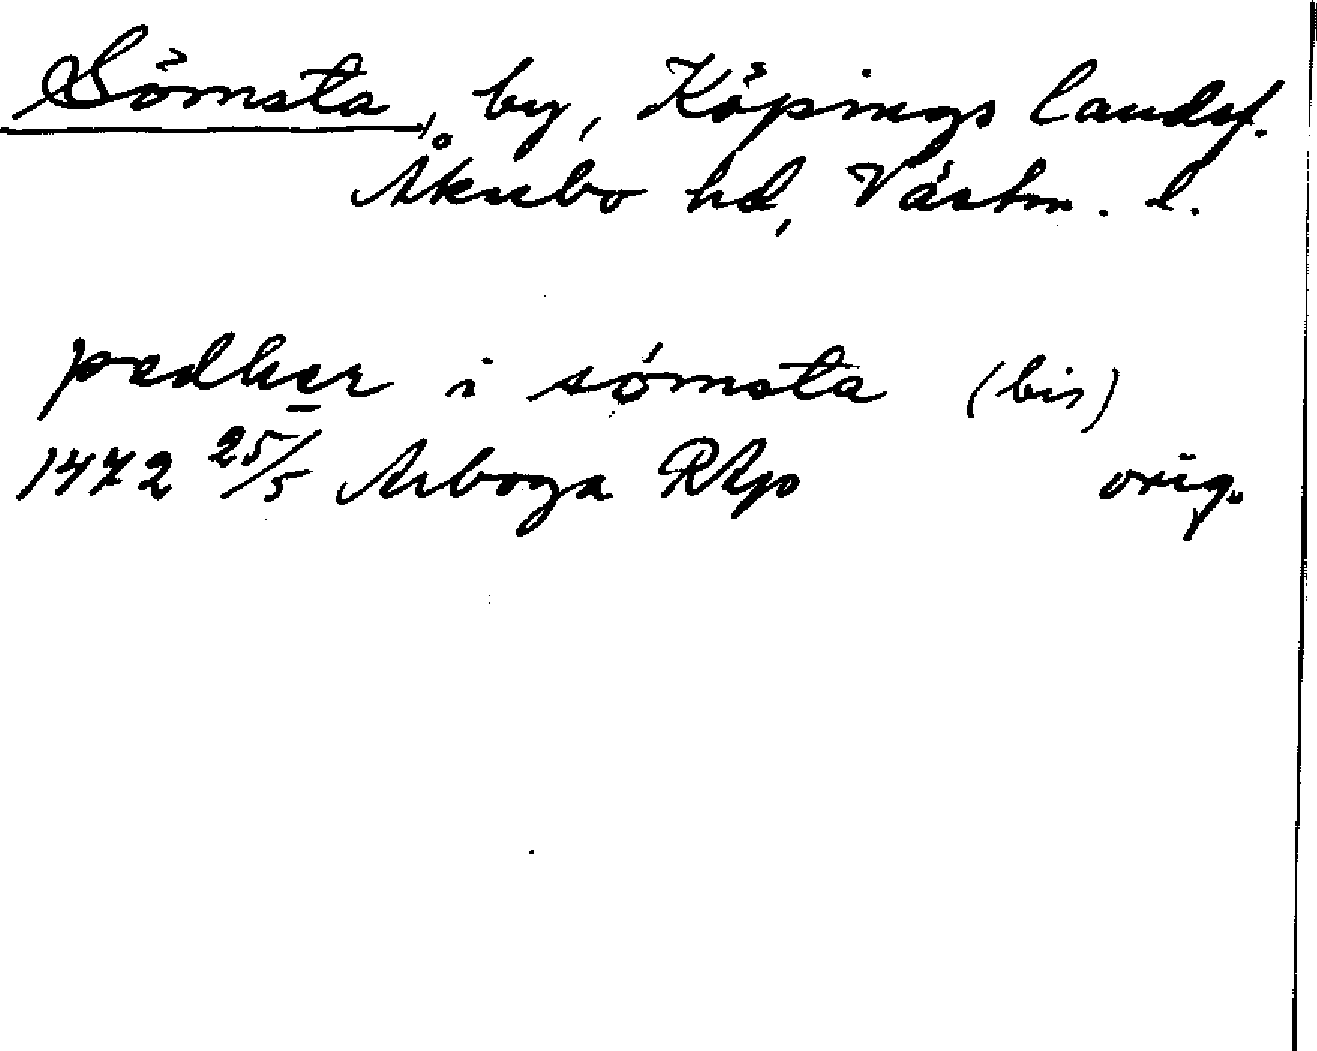 Sömsta, by, Köpings landsf.
Åkerbo hd, Västm. l.
pædher i sómsta (bis)
1472 25/5 Arboga RAp orig.